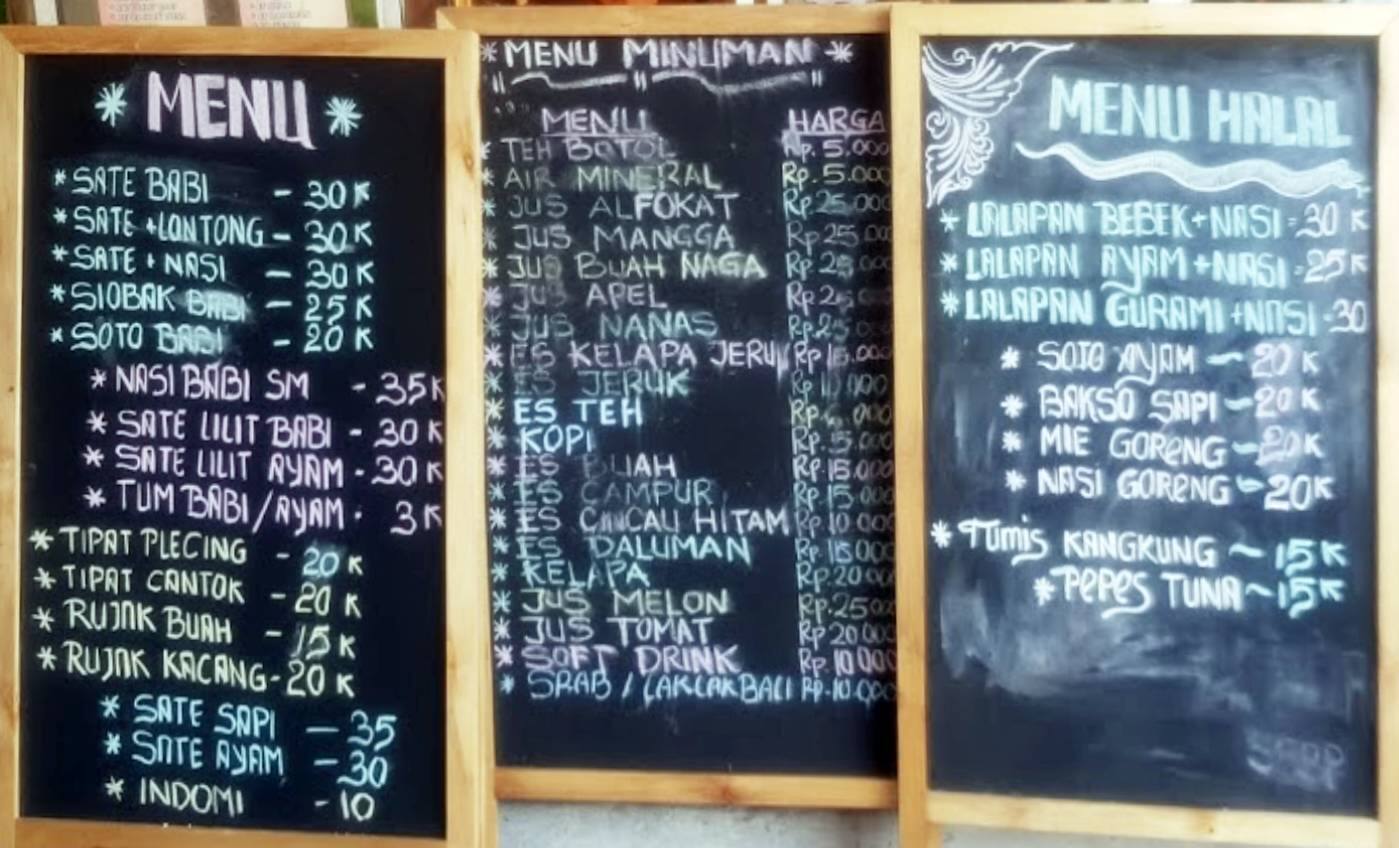 * MENU *
* SATE BABI - 30 K
* SATE + LONTONG - 30 K
* SATE + NASI - 30 K
* SIOBAK BABI - 25 K
* SOTO BABI - 20 K
* NASI BABI SM - 35 K
* SATE LILIT BABI - 30 K
* SATE LILIT AYAM - 30 K
* TUM BABI / AYAM - 3 K
* TIPAT PLECING - 20 K
* TIPAT CANTOK - 20 K
* RUJAK BUAH - 15 K
* RUJAK KACANG - 20 K
* SATE SAPI - 35
* SATE AYAM - 30
* INDOMI - 10
* MENU MINUMAN *
MENU HARGA
* TEH BOTOL Rp. 5.000
* AIR MINERAL Rp. 5.000
* JUS ALFOKAT Rp. 25.000
* JUS MANGGA Rp. 25.000
* JUS BUAH NAGA Rp. 25.000
* JUS APEL Rp. 25.000
* JUS NANAS Rp. 25.000
* ES KELAPA JERUK Rp. 15.000
* ES JERUK Rp. 10.000
* ES TEH Rp.
* KOPI Rp. 5.000
* ES BUAH Rp. 15.000
* ES CAMPUR Rp. 15.000
* ES CINCAU HITAM Rp. 10.000
* ES DALUMAN Rp. 15.000
* KELAPA Rp. 20.000
* JUS MELON Rp. 25.000
* JUS TOMAT Rp. 20.000
* SOFT DRINK Rp. 10.000
* SRAB / LAKLAK BALI Rp. 10.000
MENU HALAL
* LALAPAN BEBEK + NASI = 30 K
* LALAPAN AYAM + NASI = 25 K
* LALAPAN GURAMI + NASI - 30
* SOTO AYAM - 20 K
* BAKSO SAPI - 20 K
* MIE GORENG - 20 K
* NASI GORENG - 20 K
* TUMIS KANGKUNG ~ 15 K
* PEPES TUNA ~ 15 K